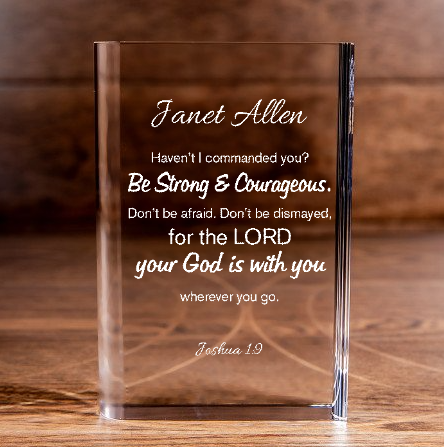 Janet Allen
Haven't I commanded you?
Be Strong & Courageous.
Don't be afraid. Don't be dismayed,
for the LORD
your God is with you
wherever you go.
Joshua 1:9